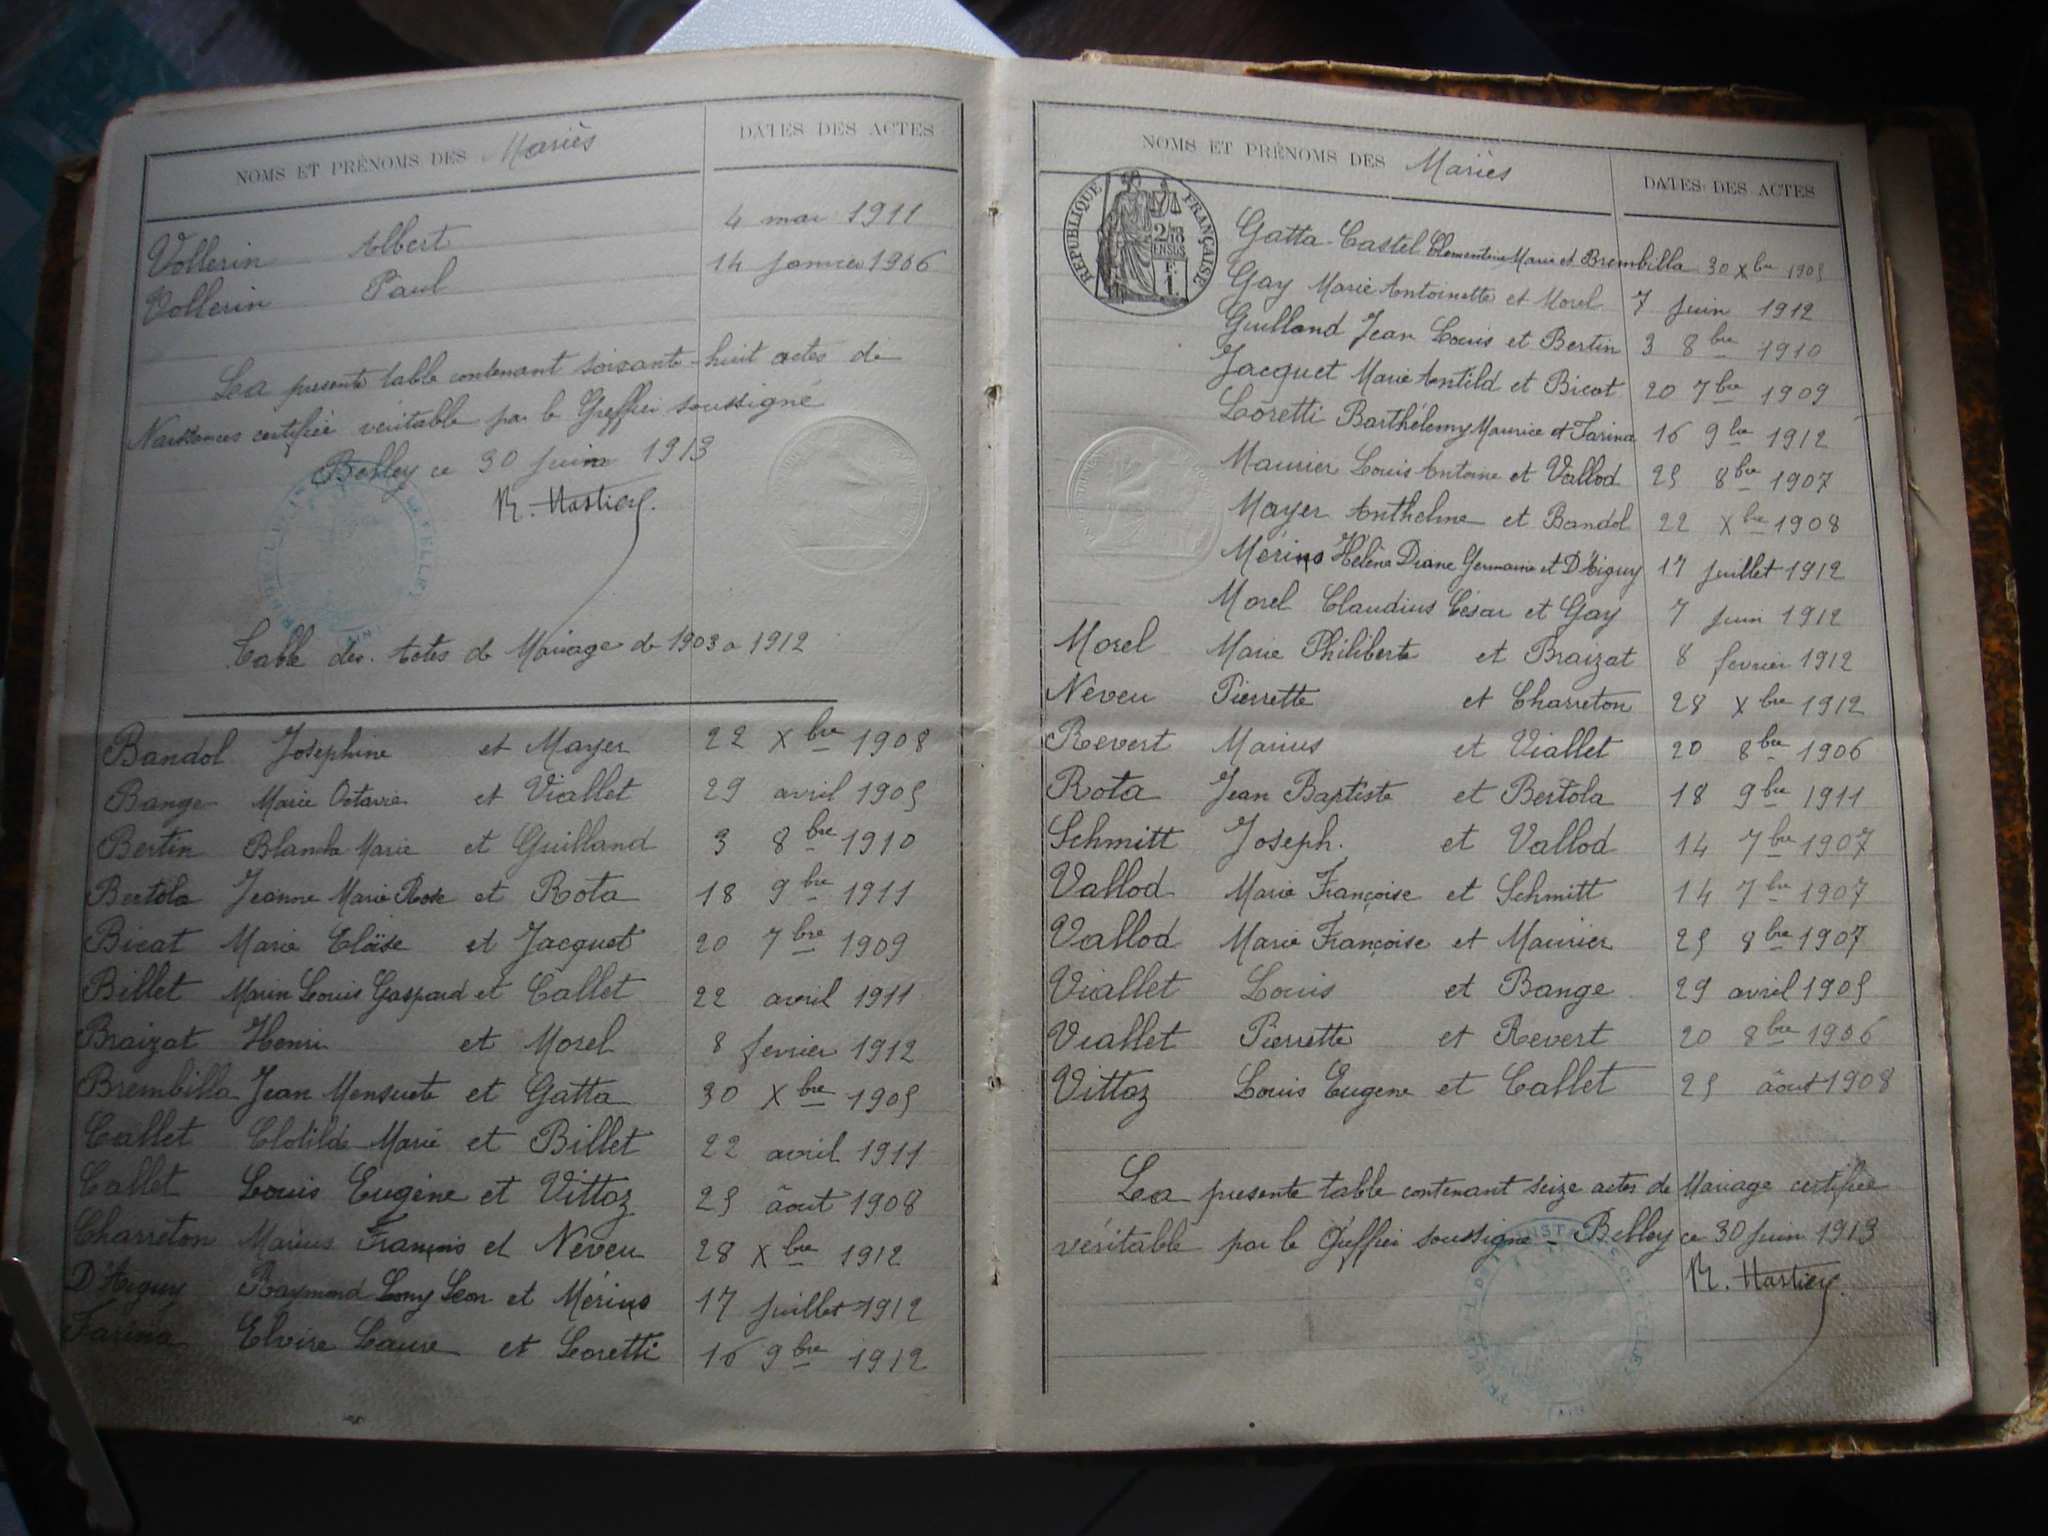 NOMS ET PRÉNOMS DES Mariès DATES DES ACTES
Vollerin Albert 4 mai 1911
Vollerin Paul 14 Janvier 1906
La presente table contenant soixante-huit actes de
Naissances certifiée véritable par le Greffier soussigné
Belley ce 30 Juin 1913
Table des Actes de Mariage de 1903 a 1912
Bandol Josephine et Mayer 22 Xbre 1908
Bange Marie Octavie et Viallet 29 avril 1905
Bertin Blanche Marie et Guilland 3 8bre 1910
Bertola Jeanne Marie Rose et Rota 18 9bre 1911
Bicat Marie Eloïse et Jacquet 20 7bre 1909
Billet Marin Louis Gaspard et Callet 22 avril 1911
Braizat Henri et Morel 8 fevrier 1912
Brembilla Jean Mensuete et Gatta 30 Xbre 1905
Callet Clotilde Marie et Billet 22 avril 1911
Callet Louis Eugène et Vittoz 25 âout 1908
Charreton Marius François et Neveu 28 Xbre 1912
D'Aiguy Raymond Leon et Mérius 17 Juillet 1912
Farina Elvire Laure et Loretti 16 9bre 1912
NOMS ET PRÉNOMS DES Mariès DATES DES ACTES
RÉPUBLIQUE FRANÇAISE
2/10 EN SUS
1 F.
Gatta-Castel Clementine Marie et Brembilla 30 Xbre 1905
Gay Marie Antoinette et Morel 7 Juin 1912
Guilland Jean Louis et Bertin 3 8bre 1910
Jacquet Marie Antild et Bicat 20 7bre 1909
Loretti Barthélemy Maurice et Farina 16 9bre 1912
Maurier Louis Antoine et Vallod 25 8bre 1907
Mayer Anthelme et Bandol 22 Xbre 1908
Mérius Hélène Diane Germaine et D'Aiguy 17 Juillet 1912
Morel Claudius César et Gay 7 Juin 1912
Morel Marie Philiberte et Braizat 8 fevrier 1912
Neveu Pierrette et Charreton 28 Xbre 1912
Revert Marius et Viallet 20 8bre 1906
Rota Jean Baptiste et Bertola 18 9bre 1911
Schmitt Joseph. et Vallod 14 7bre 1907
Vallod Marie Françoise et Schmitt 14 7bre 1907
Vallod Marie Françoise et Maurier 25 8bre 1907
Viallet Louis et Bange 29 avril 1905
Viallet Pierrette et Revert 20 8bre 1906
Vittoz Louis Eugene et Callet 25 âout 1908
La presente table contenant seize actes de Mariage certifiée
véritable par le Greffier soussigné - Belley ce 30 Juin 1913